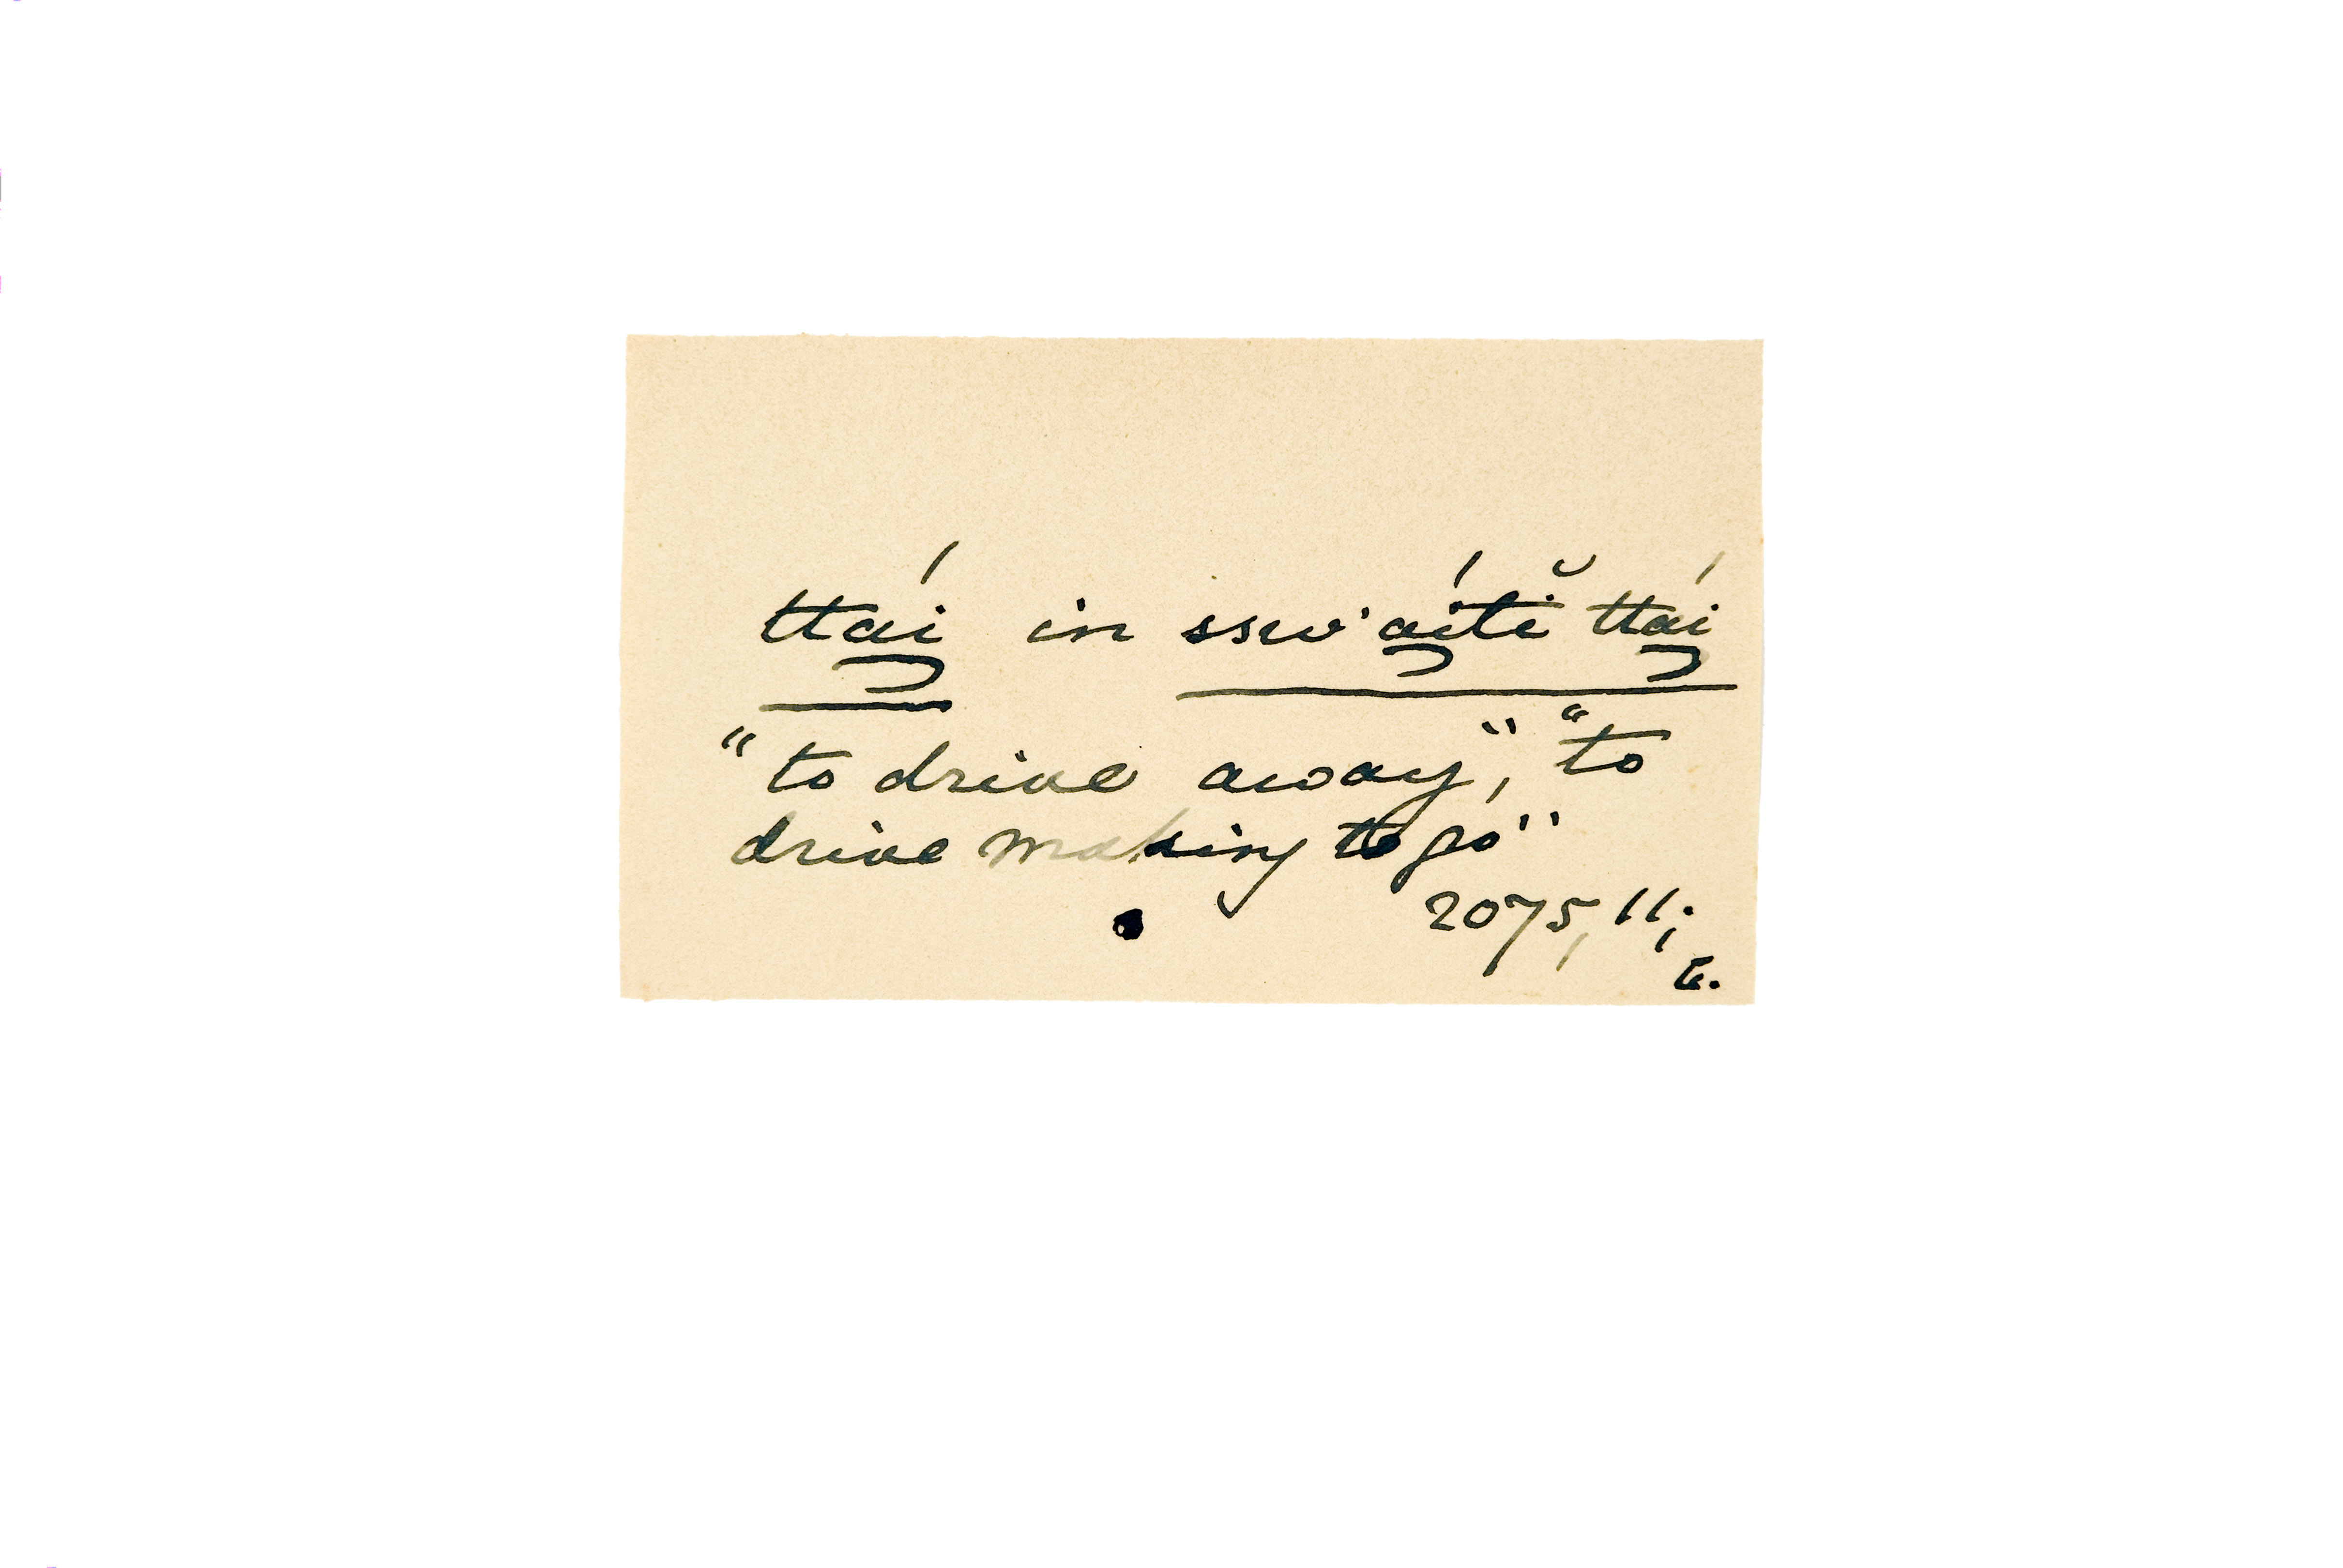 ttái̯ in ssw'ái̯tĭ ttái̯
"to drive away", "to
drive making to go"
2075, 11;